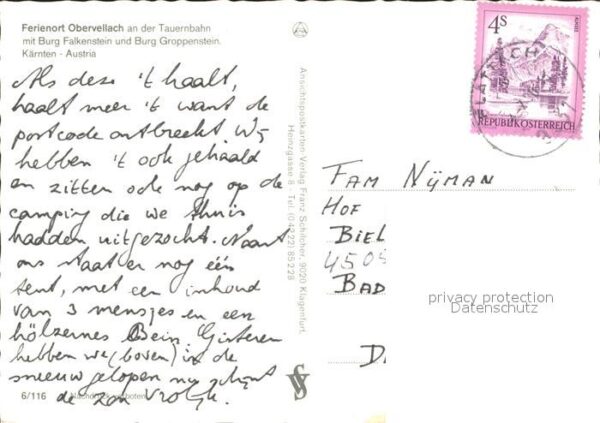 Ferienort Obervellach an der Tauernbahn
mit Burg Falkenstein und Burg Groppenstein.
Kärnten - Austria
Als deze 't haalt,
haalt meer 't want de
postcode ontbreekt. Wij
hebben 't ook gehaald
en zitten ook nog op de
camping die we thuis
hadden uitgezocht. Naast
ons staat er nog één
tent, met een inhoud
van 3 mensjes en een
hölzernes Bein. Gisteren
hebben we (boven) in de
sneeuw gelopen nu schijnt
de zon vrolijk.
6/116 Nachdruck verboten
Ansichtspostkarten-Verlag Franz Schilcher, 9020 Klagenfurt,
Heinzgasse 8 - Tel. (0 42 22) 85 2 28
4S
ALMSEE
REPUBLIK ÖSTERREICH
FLATTACH
FAM NIJMAN
HOF
BIEL
4505
BAD
D
privacy protection
Datenschutz